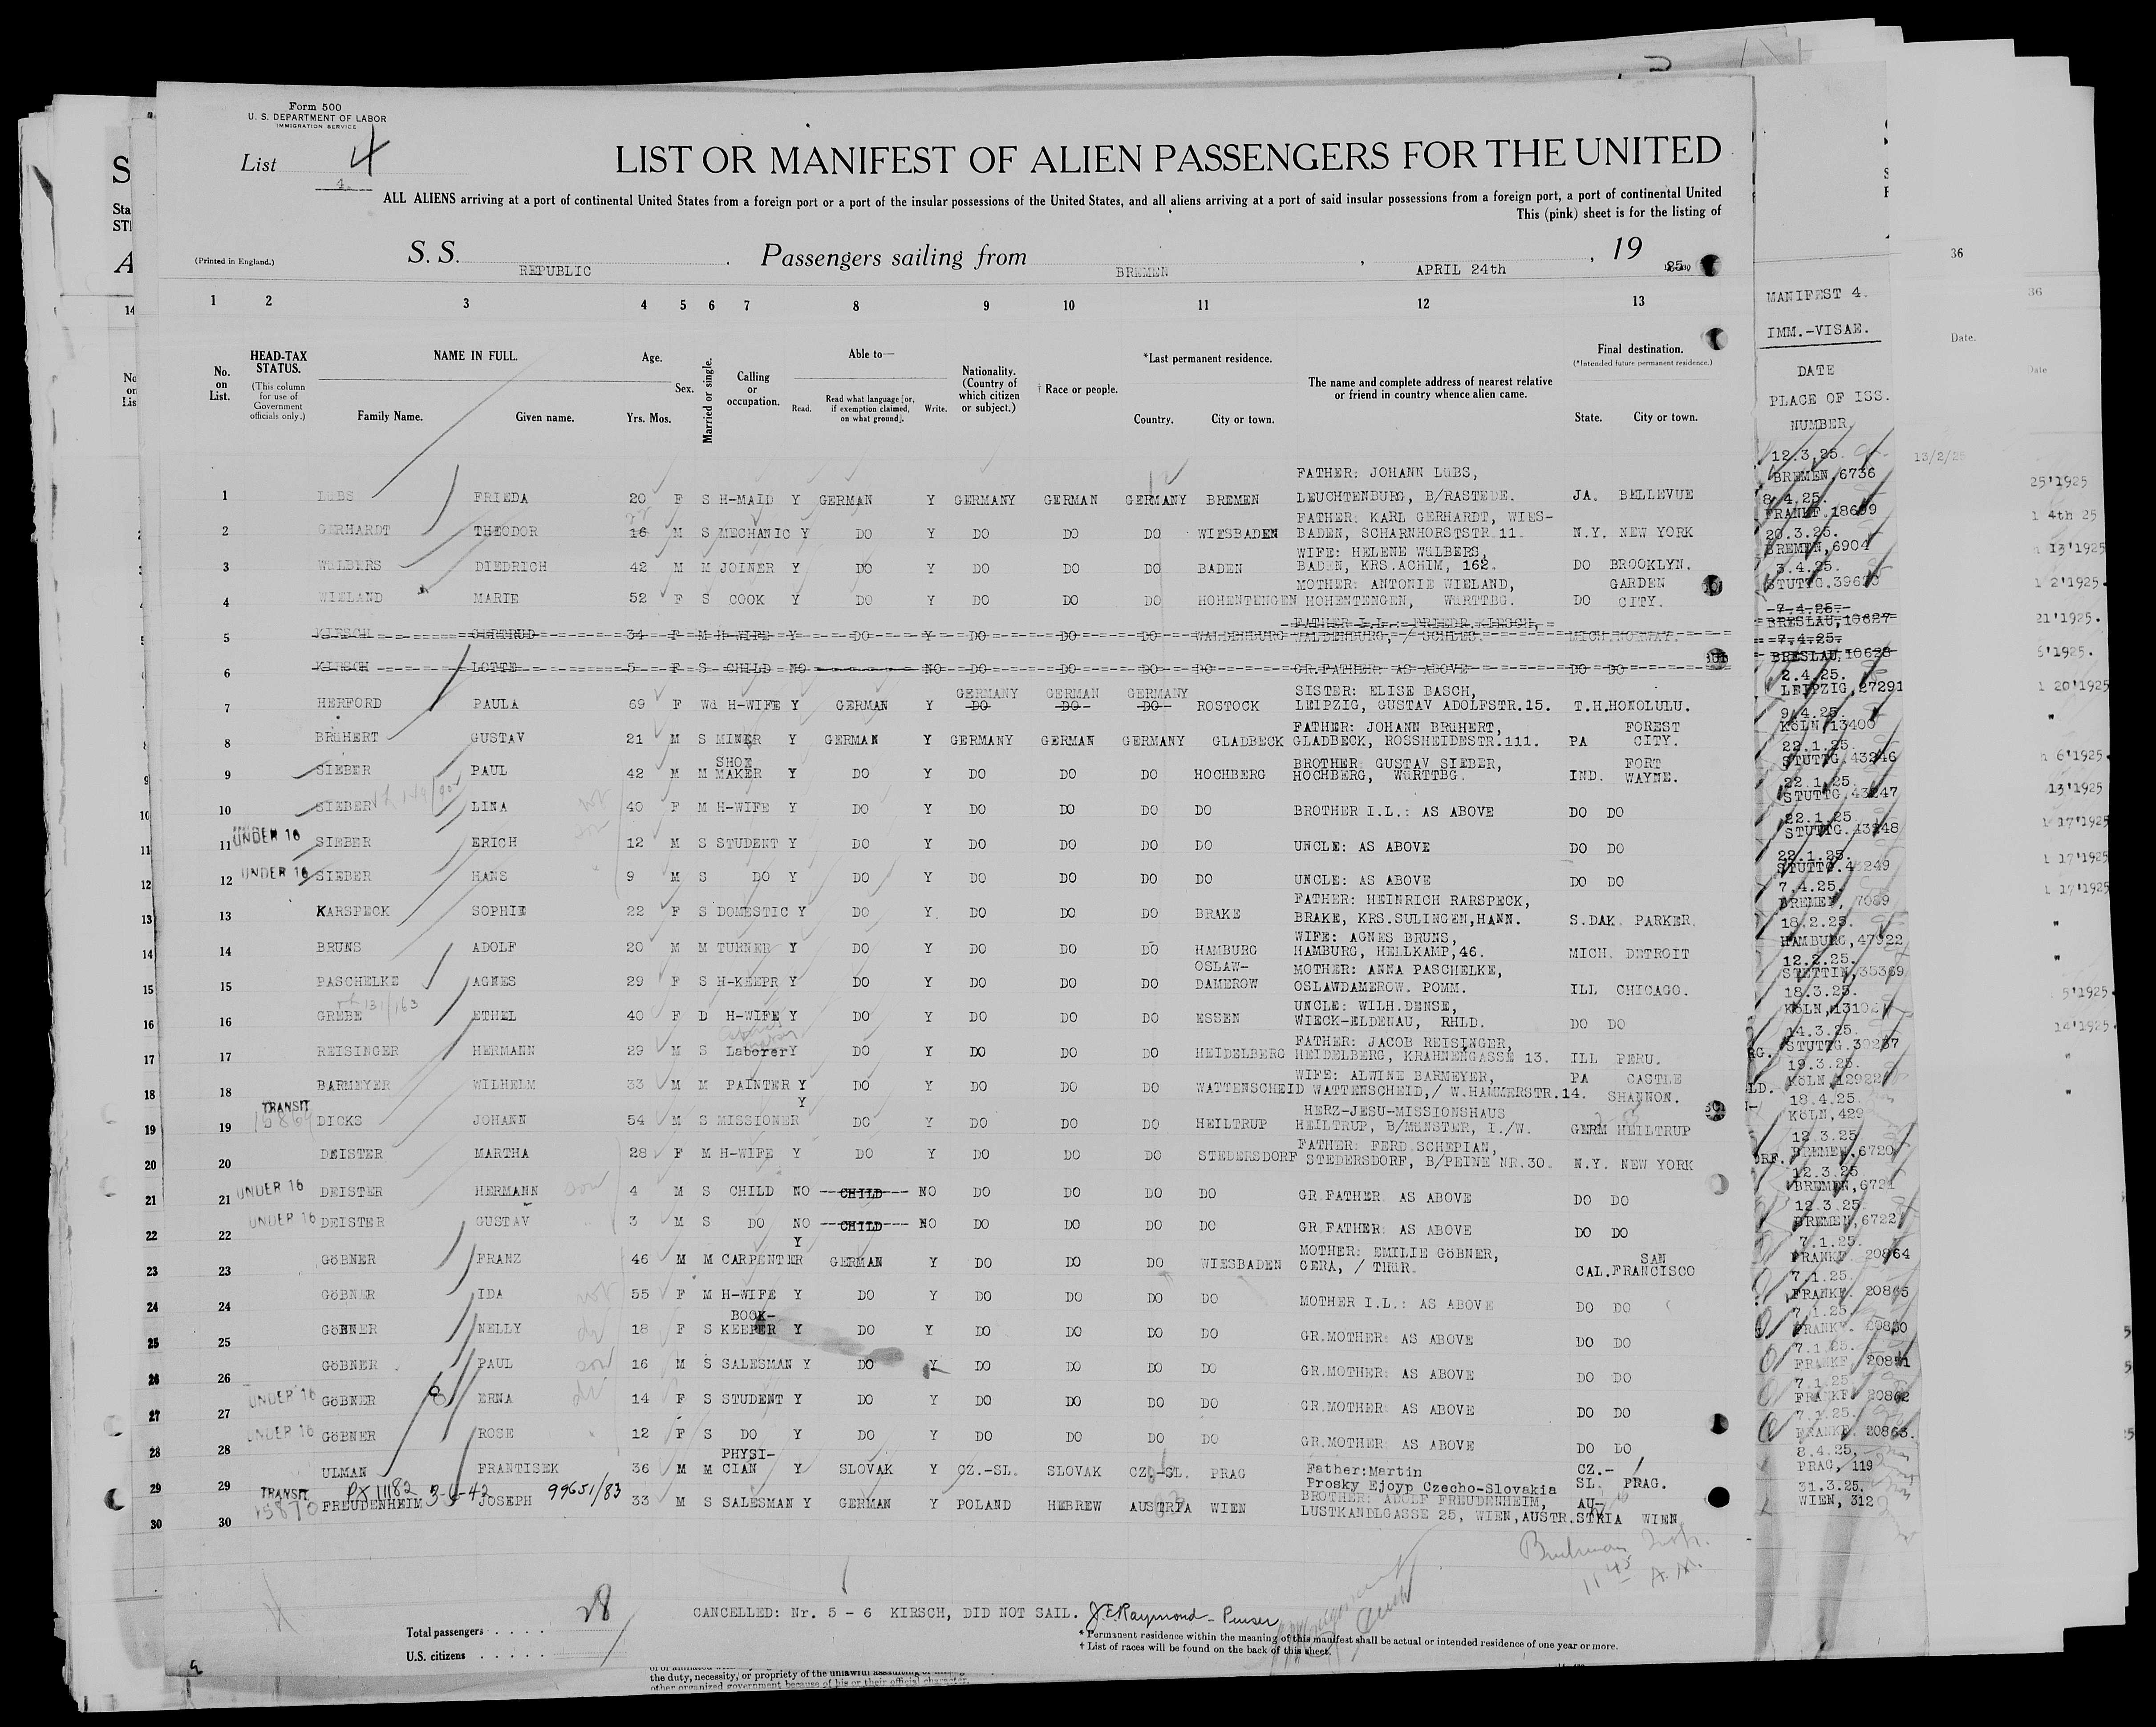 Form 500
U. S. DEPARTMENT OF LABOR
IMMIGRATION SERVICE
List 4
4.
LIST OR MANIFEST OF ALIEN PASSENGERS FOR THE UNITED
ALL ALIENS arriving at a port of continental United States from a foreign port or a port of the insular possessions of the United States, and all aliens arriving at a port of said insular possessions from a foreign port, a port of continental United
This (pink) sheet is for the listing of
(Printed in England.) S. S. REPUBLIC. Passengers sailing from BREMEN, APRIL 24th, 19 25
1 2 3 4 5 6 7 8 9 10 11 12 13
No. on List. HEAD-TAX STATUS. (This column for use of Government officials only.) NAME IN FULL. Family Name. Given name. Age. Yrs. Mos. Sex. Married or single. Calling or occupation. Able to— Read. Read what language [or, if exemption claimed, on what ground]. Write. Nationality. (Country of which citizen or subject.) † Race or people. *Last permanent residence. Country. City or town. The name and complete address of nearest relative or friend in country whence alien came. Final destination. (*Intended future permanent residence.) State. City or town.
MANIFEST 4.
IMM.-VISAE.
DATE
PLACE OF ISS.
NUMBER
FATHER: JOHANN LüBS, 12.3.25.
1 LüBS FRIEDA 20 F S H-MAID Y GERMAN Y GERMANY GERMAN GERMANY BREMEN LEUCHTENBURG, B/RASTEDE. JA. BELLEVUE BREMEN, 6736
FATHER: KARL GERHARDT, WIES- 8.4.25.
2 GERHARDT THEODOR 16 M S MECHANIC Y DO Y DO DO DO WIESBADEN BADEN, SCHARNHORSTSTR.11. N.Y. NEW YORK FRANKF.18699
WIFE: HELENE WüLBERS, 20.3.25.
3 WüLBERS DIEDRICH 42 M M JOINER Y DO Y DO DO DO BADEN BADEN, KRS.ACHIM, 162. DO BROOKLYN. BREMEN,6904
MOTHER: ANTONIE WIELAND, GARDEN 3.4.25.
4 WIELAND MARIE 52 F S COOK Y DO Y DO DO DO HOHENTENGEN HOHENTENGEN, WüRTTBG. DO CITY.
7.4.25.
5 KIRSCH GERTRUD 34 F M H-WIFE Y DO Y DO DO DO WALDENBURG WALDENBURG, / SCHLES. MICH. BRESLAU,10627
7.4.25,
6 KIRSCH LOTTE 5 F S CHILD NO NO DO DO DO DO GR.FATHER: AS ABOVE DO DO BRESLAU,10628
GERMANY GERMAN GERMANY SISTER: ELISE BASCH, 2.4.25.
7 HERFORD PAULA 69 F Wd H-WIFE Y GERMAN Y DO DO DO ROSTOCK LEIPZIG, GUSTAV ADOLFSTR.15. T.H.HONOLULU. LEIPZIG,27291
FATHER: JOHANN BRüHERT, FOREST 9.4.25.
8 BRüHERT GUSTAV 21 M S MINER Y GERMAN Y GERMANY GERMAN GERMANY GLADBECK GLADBECK, ROSSHEIDESTR.111. PA CITY. KöLN,13400
SHOE BROTHER: GUSTAV SIEBER, FORT 22.1.25.
9 SIEBER PAUL 42 M M MAKER Y DO Y DO DO DO HOCHBERG HOCHBERG, WüRTTBG. IND. WAYNE. STUTTG.43246
22.1.25.
10 SIEBER LINA 40 F M H-WIFE Y DO Y DO DO DO DO BROTHER I.L.: AS ABOVE DO DO STUTTG.43247
22.1.25
11 UNDER 16 SIEBER ERICH 12 M S STUDENT Y DO Y DO DO DO DO UNCLE: AS ABOVE DO DO STUTTG.43248
22.1.25.
12 UNDER 16 SIEBER HANS 9 M S DO Y DO Y DO DO DO DO UNCLE: AS ABOVE DO DO
FATHER: HEINRICH RARSPECK, 7.4.25.
13 KARSPECK SOPHIE 22 F S DOMESTIC Y DO Y DO DO DO BRAKE BRAKE, KRS.SULINGEN,HANN. S.DAK. PARKER. BREMEN, 7089
WIFE: AGNES BRUNS, 18.2.25.
14 BRUNS ADOLF 20 M M TURNER Y DO Y DO DO DO HAMBURG HAMBURG, HELLKAMP,46. MICH. DETROIT HAMBURG,47922
OSLAW- MOTHER: ANNA PASCHELKE, 12.2.25.
15 PASCHELKE AGNES 29 F S H-KEEPR Y DO Y DO DO DO DAMEROW OSLAWDAMEROW. POMM. ILL CHICAGO. STETTIN,35369
131/163 UNCLE: WILH.DENSE, 18.3.25.
16 GREBE ETHEL 40 F D H-WIFE Y DO Y DO DO DO ESSEN WIECK-ELDENAU, RHLD. DO DO
FATHER: JACOB REISINGER, 14.3.25.
17 REISINGER HERMANN 29 M S Laborer Y DO Y DO DO DO HEIDELBERG HEIDELBERG, KRAHNENGASSE 13. ILL PERU. STUTTG.30287
WIFE: ALWINE BARMEYER, PA CASTLE 19.3.25.
18 BARMEYER WILHELM 33 M M PAINTER Y DO Y DO DO DO WATTENSCHEID WATTENSCHEID,/ W.HAMMERSTR.14. SHANNON. KöLN,12922
TRANSIT Y HERZ-JESU-MISSIONSHAUS 18.4.25.
19 DICKS JOHANN 54 M S MISSIONER DO Y DO DO DO HEILTRUP HEILTRUP, B/MüNSTER, I./W. GERM HEILTRUP KöLN,429
FATHER: FERD.SCHEPIAN, 12.3.25
20 DEISTER MARTHA 28 F M H-WIFE Y DO Y DO DO DO STEDERSDORF STEDERSDORF, B/PEINE NR.30. N.Y. NEW YORK BREMEN,6720
12.3.25
21 UNDER 16 DEISTER HERMANN son 4 M S CHILD NO CHILD NO DO DO DO DO GR.FATHER: AS ABOVE DO DO BREMEN,6721
12.3.25.
22 UNDER 16 DEISTER GUSTAV 3 M S DO NO CHILD NO DO DO DO DO GR.FATHER: AS ABOVE DO DO BREMEN,6722
Y MOTHER: EMILIE GöBNER, SAN 7.1.25.
23 GöBNER FRANZ 46 M M CARPENTER GERMAN Y DO DO DO WIESBADEN GERA, / THüR. CAL.FRANCISCO FRANKF. 20864
7.1.25.
24 GöBNER IDA 55 F M H-WIFE Y DO Y DO DO DO DO MOTHER I.L.: AS ABOVE DO DO FRANKF. 20865
BOOK- 7.1.25.
25 GöBNER NELLY 18 F S KEEPER Y DO Y DO DO DO DO GR.MOTHER: AS ABOVE DO DO
7.1.25.
26 GöBNER PAUL son 16 M S SALESMAN Y DO Y DO DO DO DO GR.MOTHER: AS ABOVE DO DO
7.1.25.
27 UNDER 16 GöBNER ERNA 14 F S STUDENT Y DO Y DO DO DO DO GR.MOTHER: AS ABOVE DO DO FRANKF. 20862
7.1.25.
28 UNDER 16 GöBNER ROSE 12 F S DO Y DO Y DO DO DO DO GR.MOTHER: AS ABOVE DO DO FRANKF. 20863.
PHYSI- Father:Martin CZ.- 8.4.25.
29 ULMAN FRANTISEK 36 M M CIAN Y SLOVAK Y CZ.-SL. SLOVAK CZ.-SL. PRAG Prosky Ejoyp Czecho-Slovakia SL. PRAG. PRAG, 119
TRANSIT 5-6-42 99651/83 BROTHER: ADOLF FREUDENHEIM, AU- 31.3.25.
30 15870 FREUDENHEIM JOSEPH 33 M S SALESMAN Y GERMAN Y POLAND HEBREW AUSTRIA WIEN LUSTKANDLGASSE 25, WIEN,AUSTR. STRIA WIEN WIEN, 312
11 45 A.M.
CANCELLED: Nr. 5 - 6 KIRSCH, DID NOT SAIL. J.E.Raymond - Purser
Total passengers . . . . 28
U.S. citizens . . . . .
* Permanent residence within the meaning of this manifest shall be actual or intended residence of one year or more.
† List of races will be found on the back of this sheet.
the duty, necessity, or propriety of the unlawful assaulting
other organized government because of his or their official character.